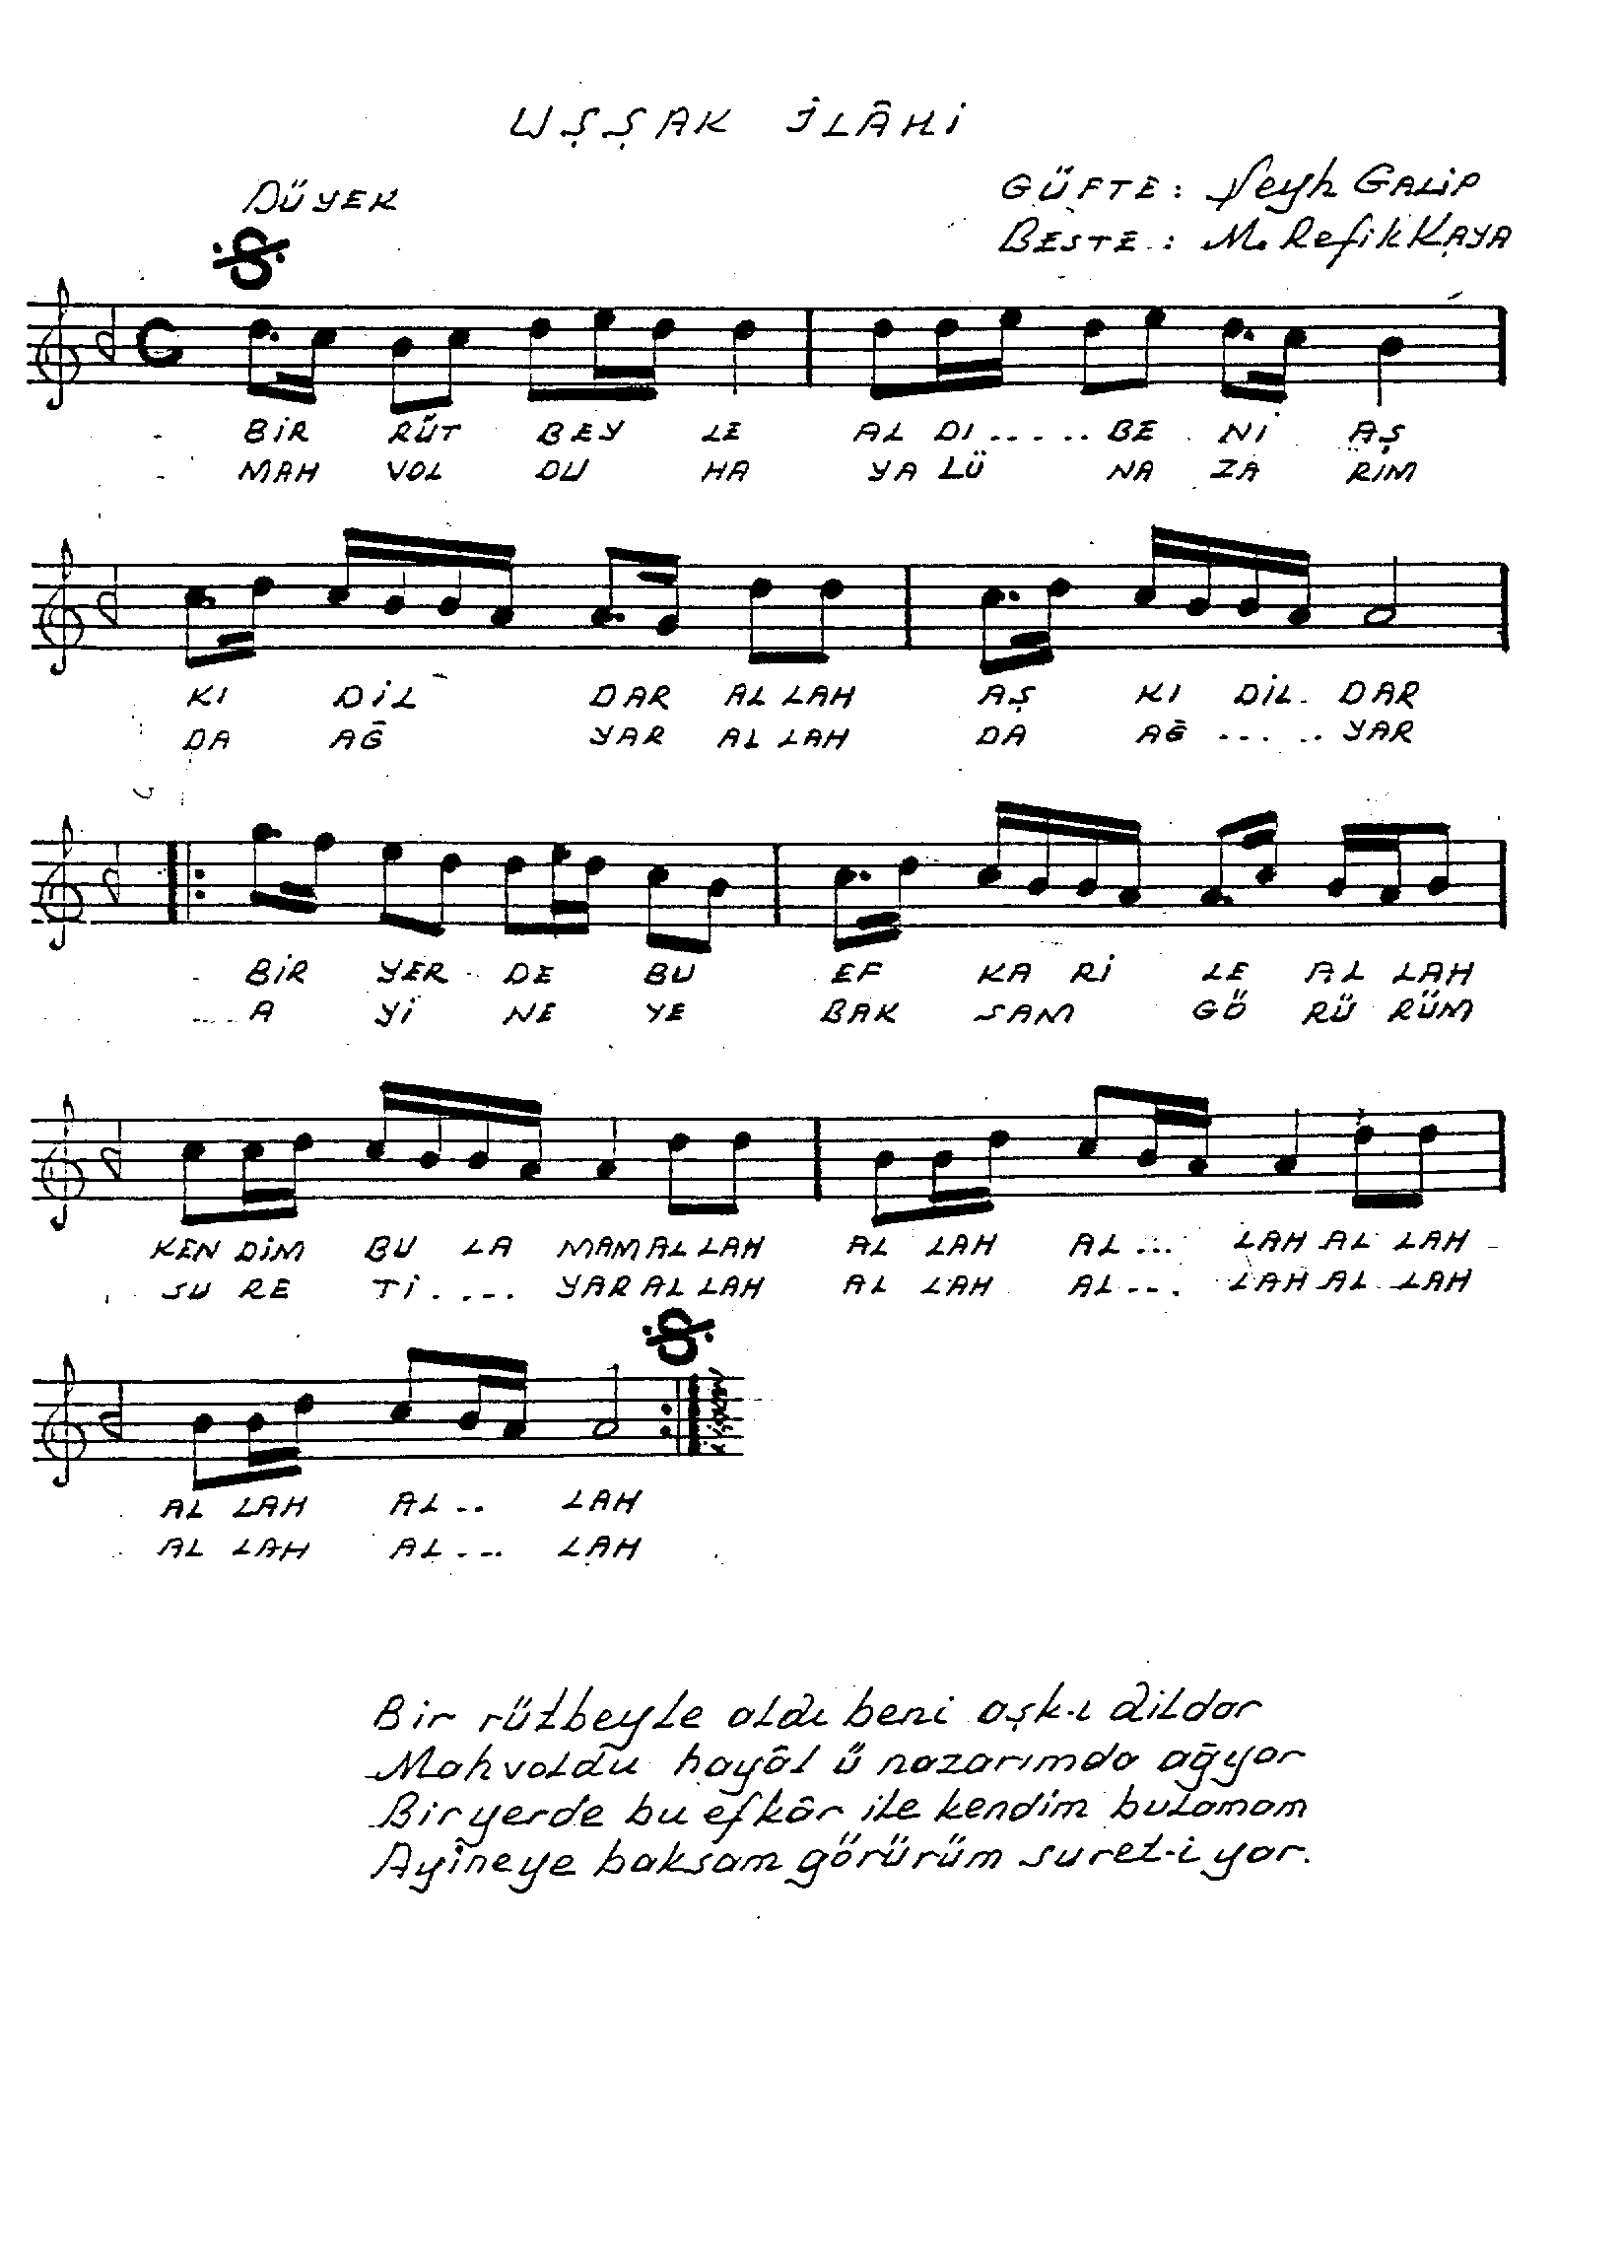 UŞŞAK İLÂHİ
DÜYEK
GÜFTE : Şeyh GALİP
BESTE : M. Refik KAYA
BİR RÜT BEY LE AL DI ..... BE Nİ AŞ
MAH VOL DU HA YA LÜ NA ZA RIM
KI DİL DAR AL LAH AŞ KI DİL. DAR
DA AĞ YAR AL LAH DA AĞ ..... YAR
BİR YER DE BU EF KA Rİ LE AL LAH
A Yİ NE YE BAK SAM GÖ RÜ RÜM
KEN DİM BU LA MAM AL LAH AL LAH AL... LAH AL LAH
SU RE Tİ ..... YAR AL LAH AL LAH AL.... LAH AL LAH
AL LAH AL .. LAH
AL LAH AL ... LAH
Bir rütbeyle aldı beni aşk-ı dildar
Mahvoldu hayâl ü nazarımda ağyar
Bir yerde bu efkâr ile kendim bulamam
Ayîneye baksam görürüm suret-i yar.